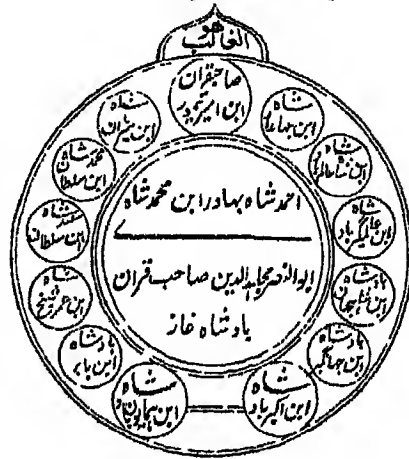 هو
الغالب
صاحبقران
ابن امیر تیمور
شاه
ابن جهان
شاه
ابن شاه عالم
شاه
ابن عالمگیر باد
بادشاه
ابن شاهجهان
بادشاه
ابن جهانگیر
شاه
ابن اکبر باد
شاه
ابن همایون باد
بادشاه
ابن بابر
شاه
ابن عمر شیخ
شاه
ابن سلطان
محمد شاه
ابن سلطان
شاه
ابن میران
احمد شاه بهادر ابن محمد شاه
ابو النصر مجاهد الدین صاحب قران
بادشاه غاز
ے